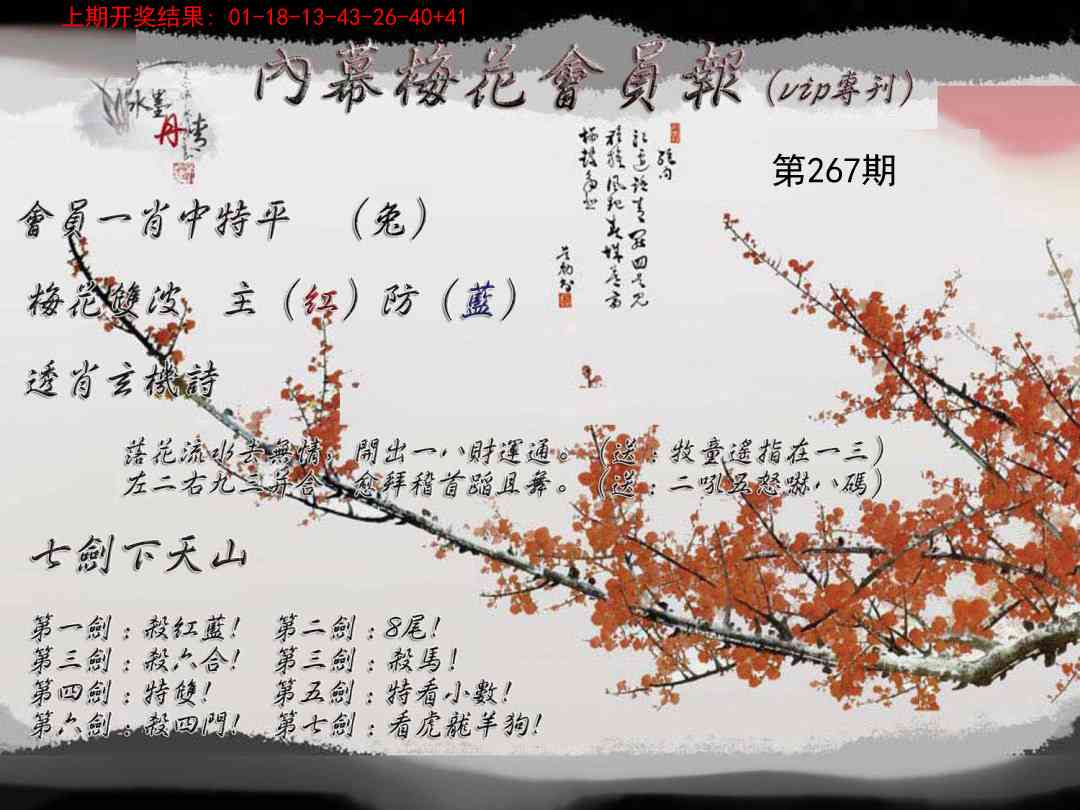 上期开奖结果：01-18-13-43-26-40+41
內幕梅花會員報（vip專刊）
水墨
丹情
第267期
會員一肖中特平　（兔）
梅花雙波　主（紅）防（藍）
透肖玄機詩
落花流水去無情，開出一八財運通。（送：牧童遙指在一三）
左二右九三弄合，愈拜稽首蹈且舞。（送：二吼五怒嚇八碼）
七劍下天山
第一劍：殺紅藍！　第二劍：8尾！
第三劍：殺六合！　第三劍：殺馬！
第四劍：特雙！　第五劍：特看小數！
第六劍：殺四門！　第七劍：看虎龍羊狗！